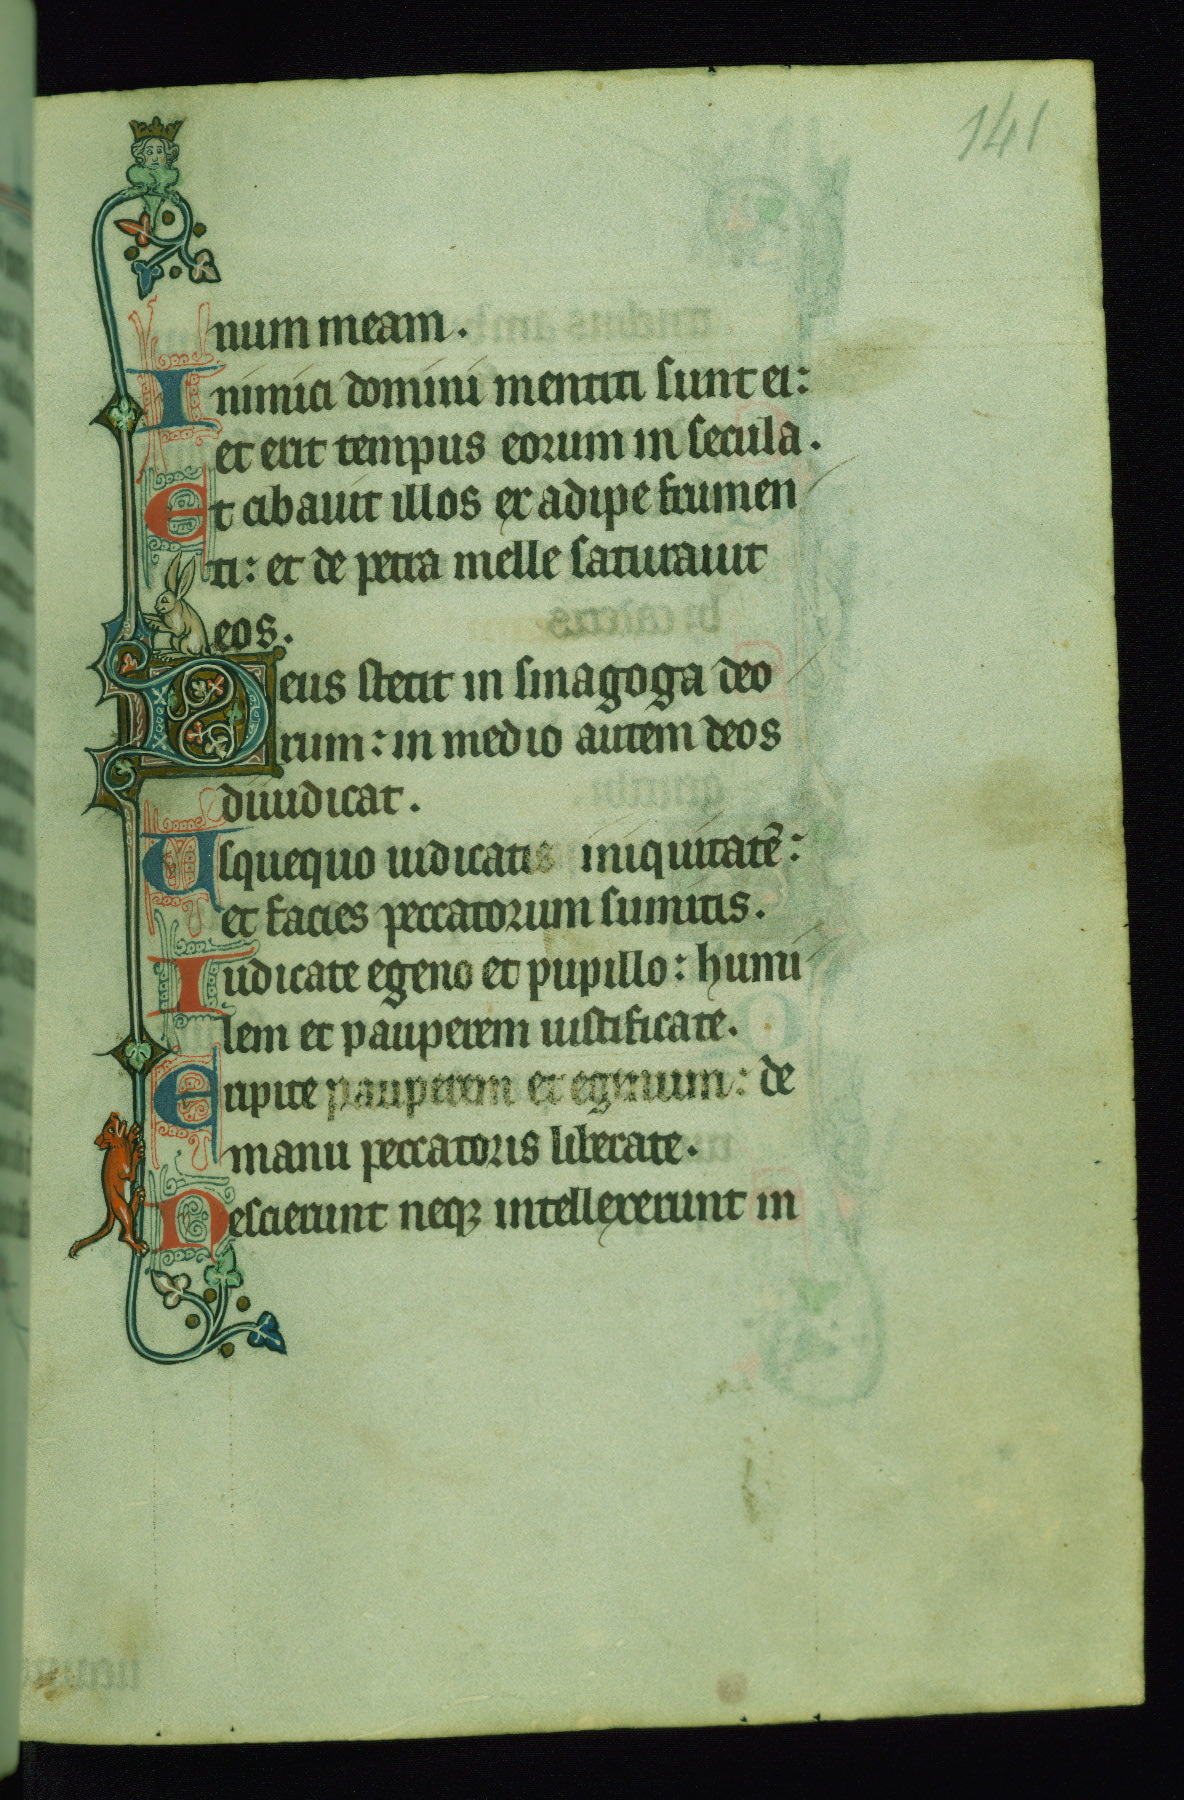 141
num meam.
Inimici domini mentiti sunt ei:
et erit tempus eorum in secula.
Et cibauit illos ex adipe frumen
ti: et de petra melle saturauit
eos.
Deus stetit in sinagoga deo
rum: in medio autem deos
diiudicat.
Usquequo iudicatis iniquitatē:
et facies peccatorum sumitis.
Iudicate egeno et pupillo: humi
lem et pauperem iustificate.
Eripite pauperem et egenum: de
manu peccatoris liberate.
Nescierunt neqꝫ intellexerunt in